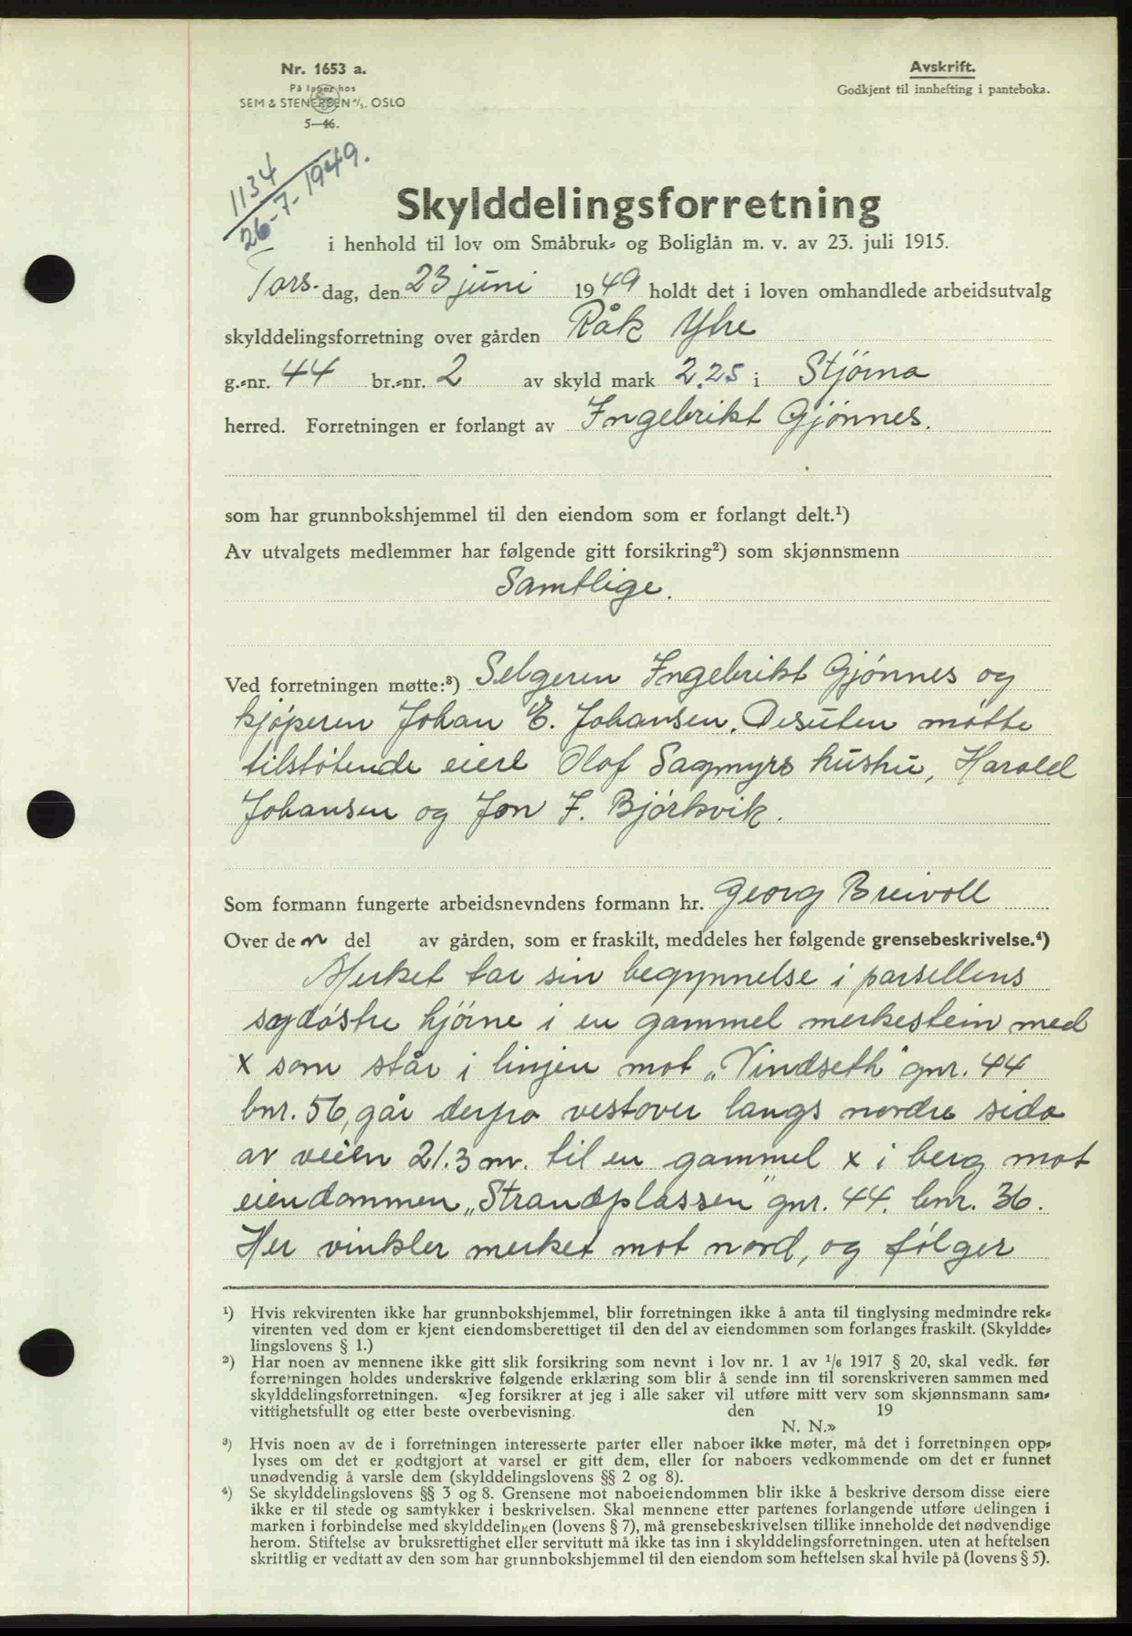 Nr. 1653 a.
På lager hos
SEM & STENERSEN A/S. OSLO
5—46.
Avskrift.
Godkjent til innhefting i panteboka.
1134
26-7-1949.
Skylddelingsforretning
i henhold til lov om Småbruk- og Boliglån m. v. av 23. juli 1915.
Tors-dag, den 23 juni 1949 holdt det i loven omhandlede arbeidsutvalg
skylddelingsforretning over gården Råk Yhre
g.-nr. 44 br.-nr. 2 av skyld mark 2.25 i Stjörna
herred. Forretningen er forlangt av Ingebrikt Gjönnes.
som har grunnbokshjemmel til den eiendom som er forlangt delt.¹)
Av utvalgets medlemmer har følgende gitt forsikring²) som skjønnsmenn
Samtlige.
Ved forretningen møtte:³) Selgeren Ingebrikt Gjönnes og
kjöperen Johan E. Johansen. Desuten møtte
tilstötende eiere Olaf Sagmyrs hustru, Harald
Johansen og Jon F. Björkvik.
Som formann fungerte arbeidsnevndens formann hr. Georg Breivoll
Over den del av gården, som er fraskilt, meddeles her følgende grensebeskrivelse.⁴)
Merket tar sin begynnelse i parsellens
sydöstre hjörne i en gammel merkestein med
x som står i linjen mot „Vindseth" gnr. 44
bnr. 56, går derfra vestover langs nordre side
av veien 21.3 m. til en gammel x i berg mot
eiendommen „Strandplassen" gnr. 44. bnr. 36.
Her vinkler merket mot nord, og følger
¹) Hvis rekvirenten ikke har grunnbokshjemmel, blir forretningen ikke å anta til tinglysing medmindre rek-
virenten ved dom er kjent eiendomsberettiget til den del av eiendommen som forlanges fraskilt. (Skyldde-
lingslovens § 1.)
²) Har noen av mennene ikke gitt slik forsikring som nevnt i lov nr. 1 av 1/6 1917 § 20, skal vedk. før
forretningen holdes underskrive følgende erklæring som blir å sende inn til sorenskriveren sammen med
skylddelingsforretningen. «Jeg forsikrer at jeg i alle saker vil utføre mitt verv som skjønnsmann sam-
vittighetsfullt og etter beste overbevisning. den 19
N. N.»
³) Hvis noen av de i forretningen interesserte parter eller naboer ikke møter, må det i forretningen opp-
lyses om det er godtgjort at varsel er gitt dem, eller for naboers vedkommende om det er funnet
unødvendig å varsle dem (skylddelingslovens §§ 2 og 8).
⁴) Se skylddelingslovens §§ 3 og 8. Grensene mot naboeiendommen blir ikke å beskrive dersom disse eiere
ikke er til stede og samtykker i beskrivelsen. Skal mennene etter partenes forlangende utføre delingen i
marken i forbindelse med skylddelingen (lovens § 7), må grensebeskrivelsen tillike inneholde det nødvendige
herom. Stiftelse av bruksrettighet eller servitutt må ikke tas inn i skylddelingsforretningen. uten at heftelsen
skriftlig er vedtatt av den som har grunnbokshjemmel til den eiendom som heftelsen skal hvile på (lovens § 5).